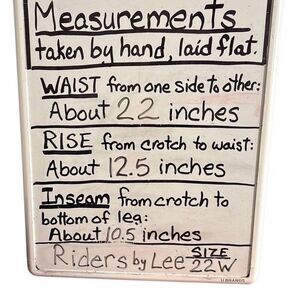 Measurements
taken by hand, laid flat.
WAIST from one side to other:
About 22 inches
RISE from crotch to waist:
About 12.5 inches
Inseam from crotch to
bottom of leg:
About 10.5 inches
Riders by Lee SIZE 22W
U BRANDS